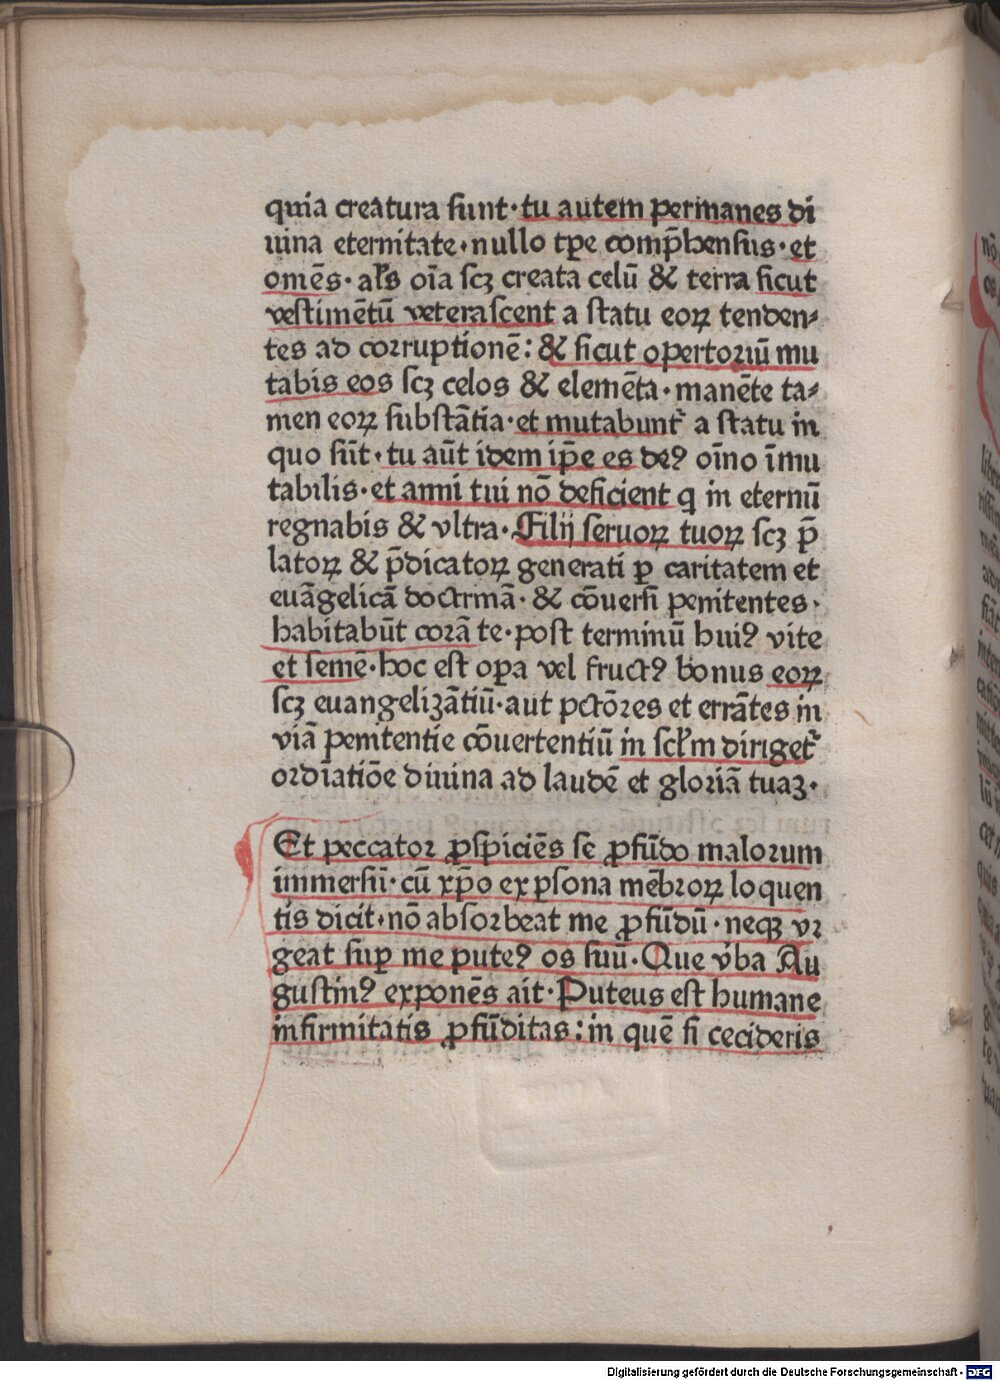 quia creatura sunt·tu autem permanes di
uina eternitate·nullo tꝑe comp̄hensus·et
omēs·al̄s oīa scꝫ creata celū & terra sicut
vestimētū veterascent a statu eoꝝ tenden⸗
tes ad corruptionē: & sicut opertoriū mu
tabis eos scꝫ celos & elemēta·manēte ta⸗
men eoꝝ substātia·et mutabunt᷑ a statu in
quo sūt·tu aūt idem ip̄e es deꝰ oīno īmu
tabilis·et anni tui nō deficient q in eternū
regnabis & vltra·Filij seruoꝝ tuoꝝ scꝫ p̄
latoꝝ & p̄dicatoꝝ generati ꝑ caritatem et
euāgelicā doctrinā·& cōuersi penitentes·
habitabūt corā te·post terminū huiꝰ vite
et semē·hoc est oꝑa vel fructꝰ bonus eoꝝ
scꝫ euangelizātiū·aut pctōres et errātes in
viā penitentie cōuertentiū in scl̄m diriget᷑
ordiatiōe diuina ad laudē et gloriā tuaꝫ·
Et peccator ꝓspiciēs se ꝓfūdo malorum
immersū·cū xp̄o ex ꝑsona mēbroꝝ loquen
tis dicit·nō absorbeat me ꝓfūdū·neqꝫ vr
geat suꝑ me puteꝰ os suū·Que v̄ba Au
gustinꝰ exponēs ait·Puteus est humane
infirmitatis ꝓfūditas: in quē si cecideris
Digitalisierung gefördert durch die Deutsche Forschungsgemeinschaft · DFG